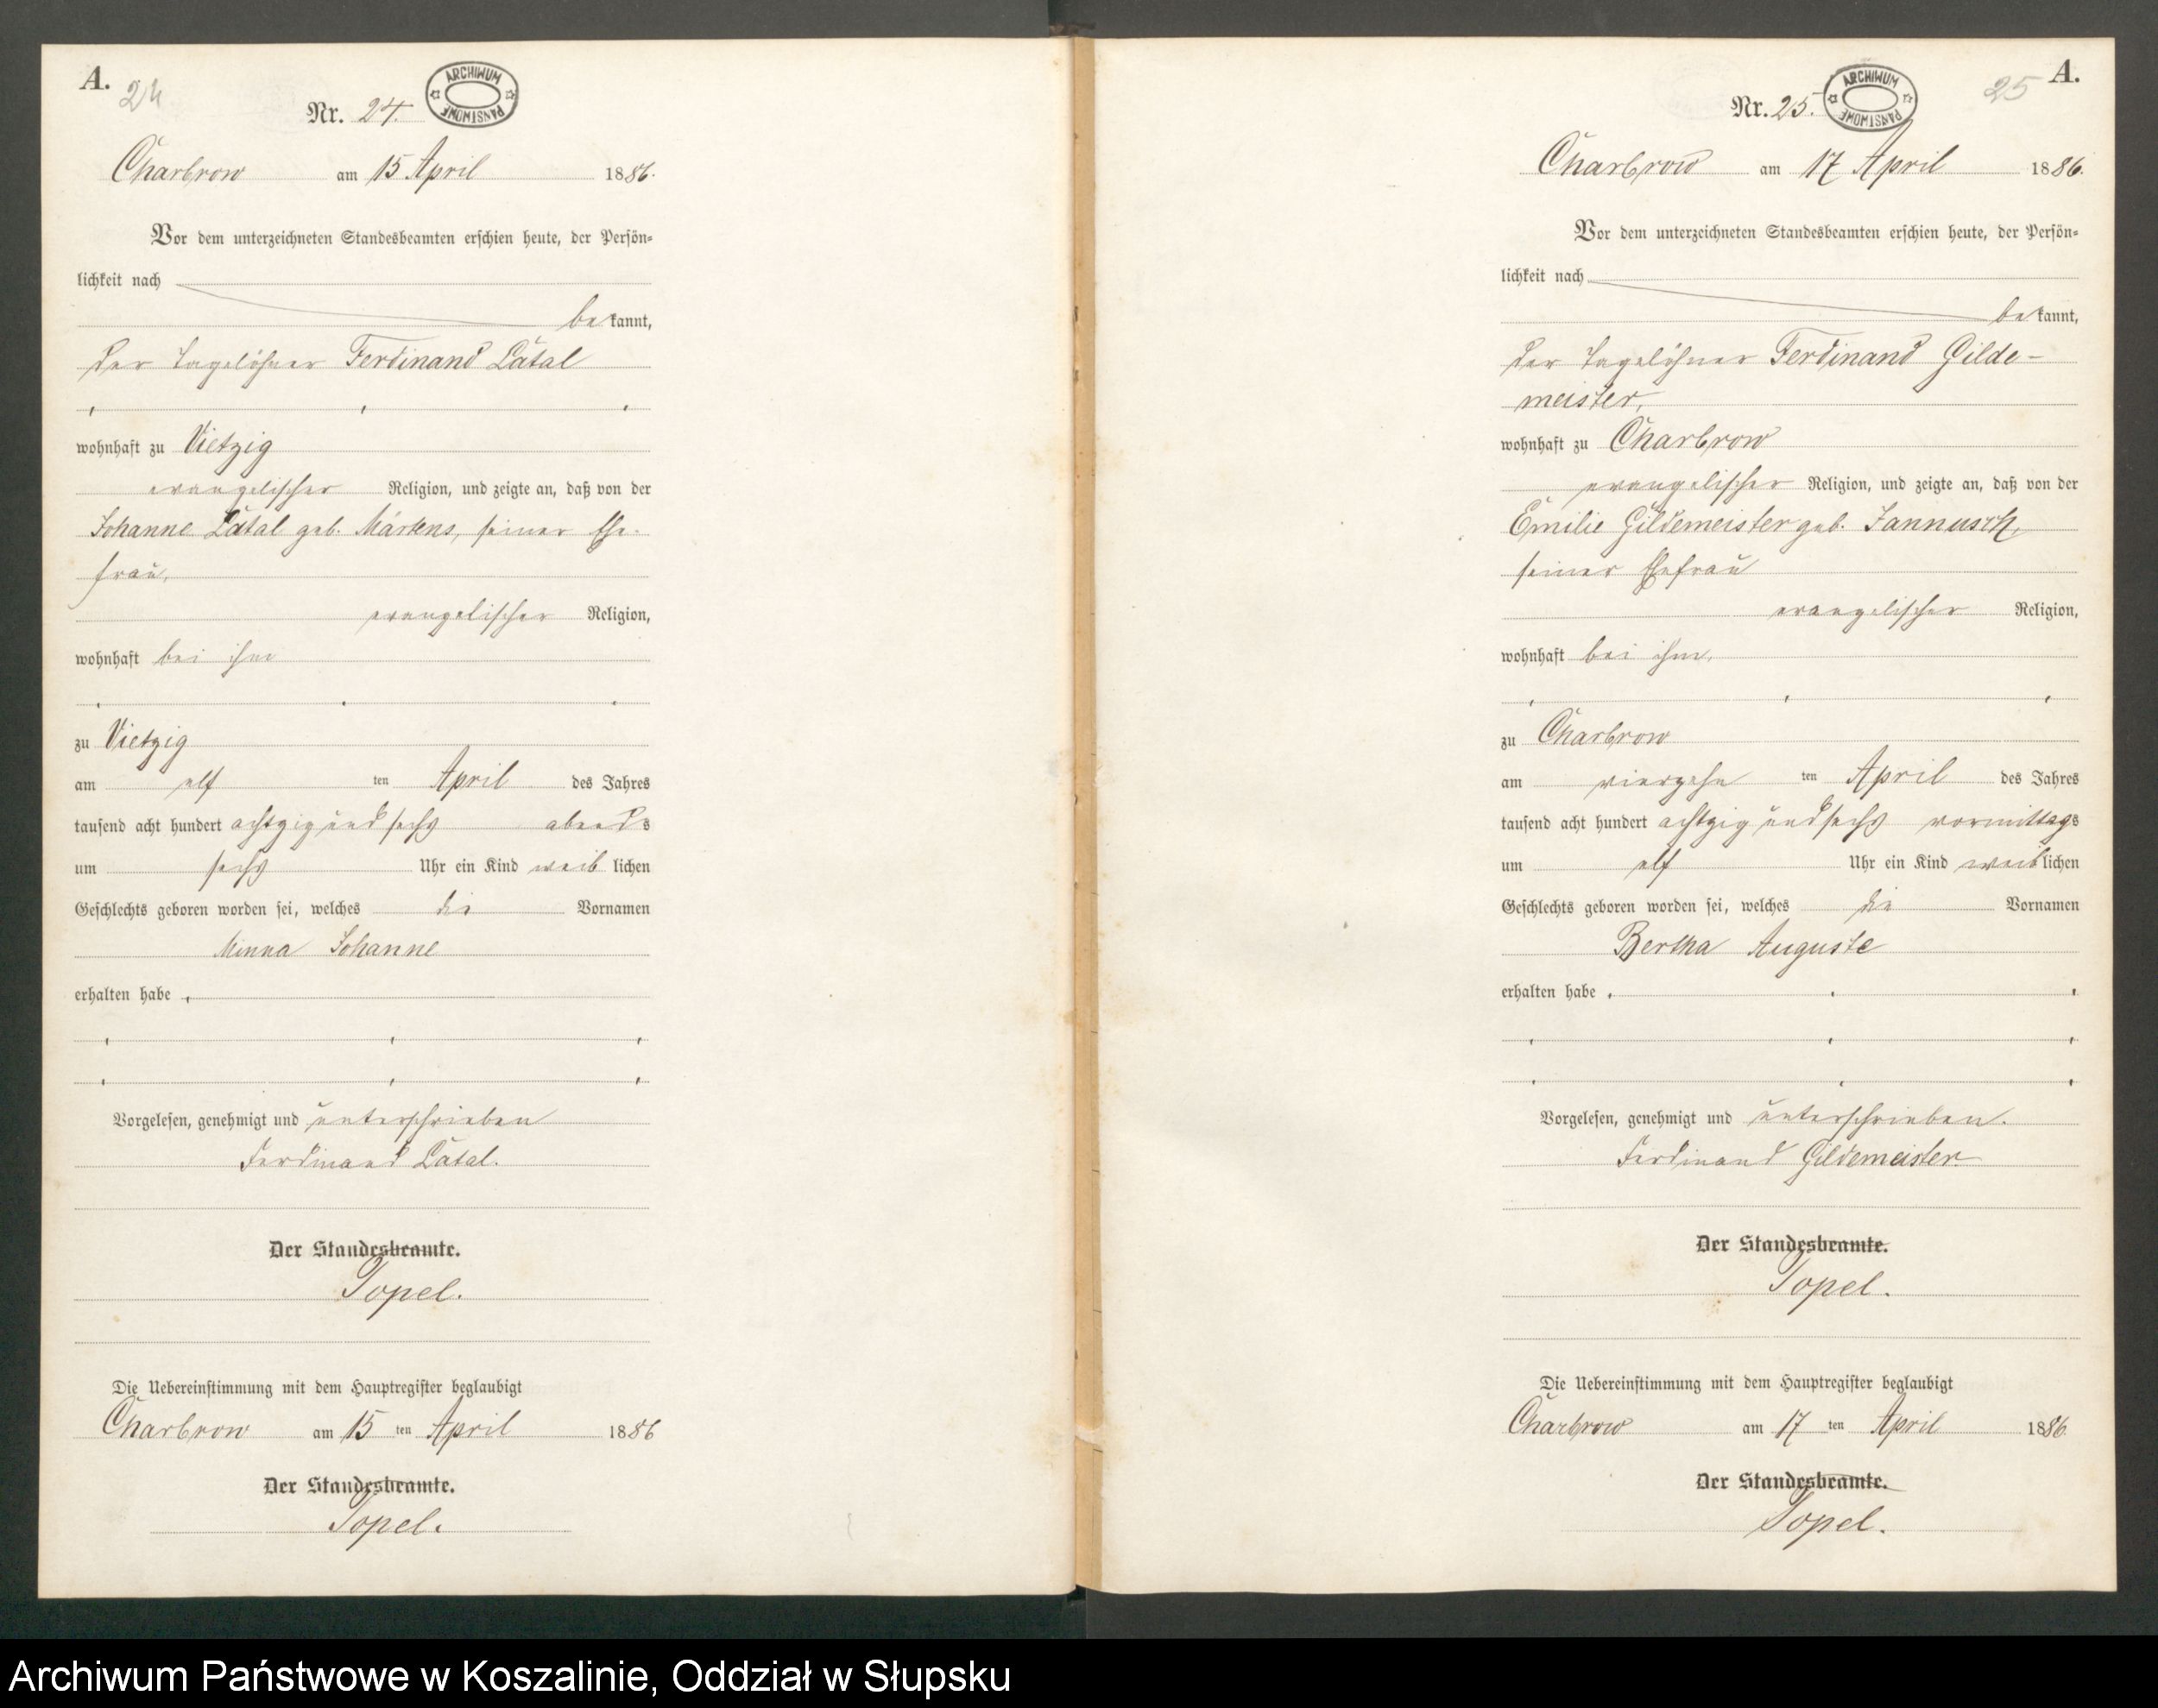 A.
24
Nr. 24.
ARCHIWUM PAŃSTWOWE
Charbrow am 15 April 1886.
Vor dem unterzeichneten Standesbeamten erschien heute, der Persön=
lichkeit nach
bekannt,
der Tagelöhner Ferdinand Latal
wohnhaft zu Vietzig
evangelischer Religion, und zeigte an, daß von der
Johanne Latal geb. Martens, seiner Ehe-
frau,
evangelischer Religion,
wohnhaft bei ihm
zu Vietzig
am elf ten April des Jahres
tausend acht hundert achtzig und sechs abends
um sechs Uhr ein Kind weiblichen
Geschlechts geboren worden sei, welches die Vornamen
Minna Johanne
erhalten habe
Vorgelesen, genehmigt und unterschrieben
Ferdinand Latal.
Der Standesbeamte.
Topel.
Die Uebereinstimmung mit dem Hauptregister beglaubigt
Charbrow am 15 ten April 1886
Der Standesbeamte.
Topel.
A.
25
Nr. 25.
ARCHIWUM PAŃSTWOWE
Charbrow am 17 April 1886.
Vor dem unterzeichneten Standesbeamten erschien heute, der Persön=
lichkeit nach
bekannt,
der Tagelöhner Ferdinand Gilde-
meister,
wohnhaft zu Charbrow
evangelischer Religion, und zeigte an, daß von der
Emilie Gildemeister geb. Jannusch,
seiner Ehefrau
evangelischer Religion,
wohnhaft bei ihm,
zu Charbrow
am vierzehn ten April des Jahres
tausend acht hundert achtzig und sechs vormittags
um elf Uhr ein Kind weiblichen
Geschlechts geboren worden sei, welches die Vornamen
Bertha Auguste
erhalten habe
Vorgelesen, genehmigt und unterschrieben.
Ferdinand Gildemeister.
Der Standesbeamte.
Topel.
Die Uebereinstimmung mit dem Hauptregister beglaubigt
Charbrow am 17 ten April 1886.
Der Standesbeamte.
Topel.
Archiwum Państwowe w Koszalinie, Oddział w Słupsku